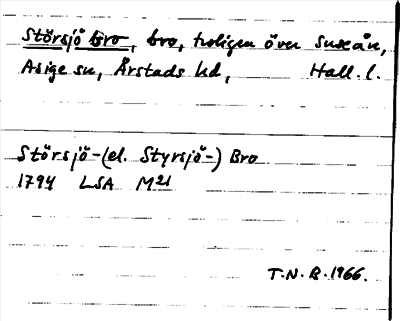 Störsjö bro, bro, troligen över Suseån,
Asige sn, Årstads hd, Hall. l.
Störsjö-(el. Styrsjö-) Bro
1794 LSA M21
T.N.B. 1966.